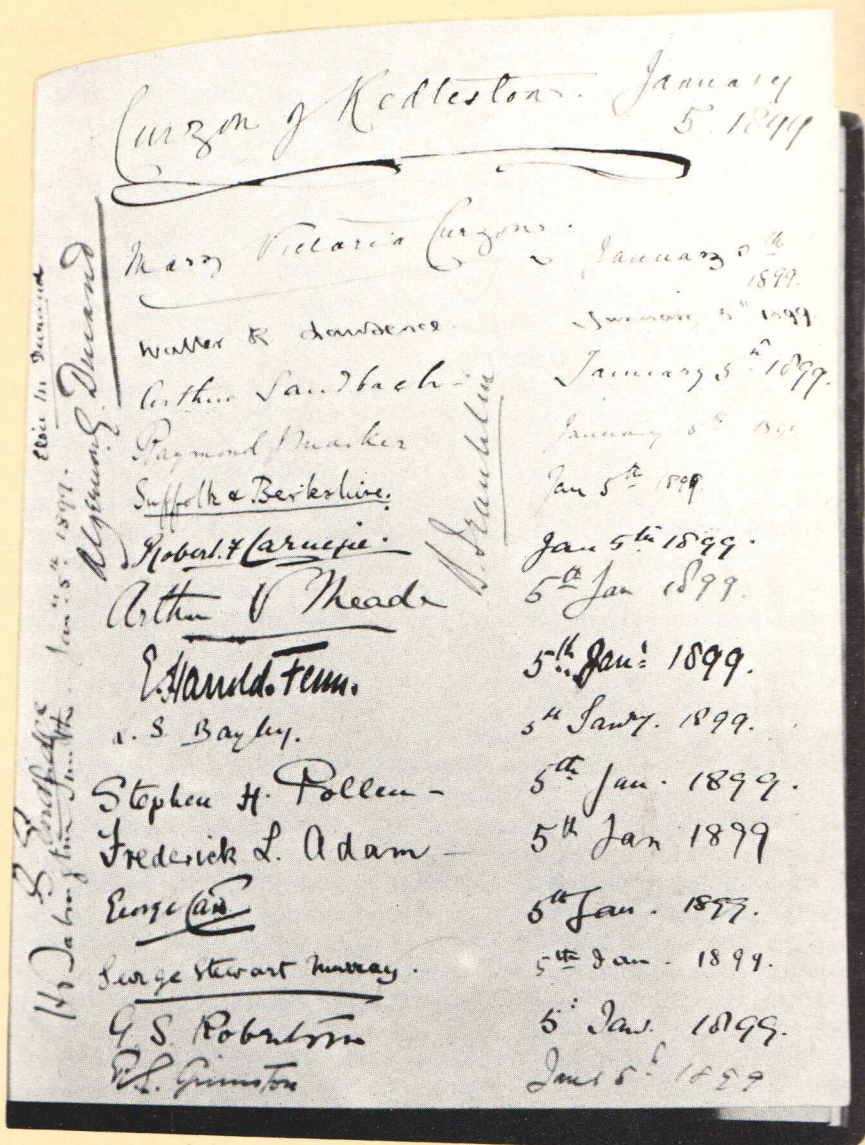 Curzon of Kedleston. January
5. 1899
Mary Victoria Curzon. January 5th
1899.
Walter R Lawrence. January 5th 1899.
Arthur Sandbach - January 5th 1899.
Raymond Marker January 5th 1899
Suffolk & Berkshire. Jan 5th 1899
Robert F Carnegie. Jan 5th 1899.
Arthur V Meade 5th Jan 1899.
E. Harold Fenn. 5th Jan: 1899.
S. Bayley. 5th Jany. 1899.
Stephen H. Pollen - 5th Jan. 1899.
Frederick L. Adam - 5th Jan 1899
George 5th Jan. 1899.
George Stewart Murray. 5th Jan. 1899.
G. S. Robertson 5: Jan. 1899.
Grimston Jan 5th 1899
Algernon G. Durand
Elsie M Durand
H. Babington Smith. Jan. 5th 1899.
B. Franklin